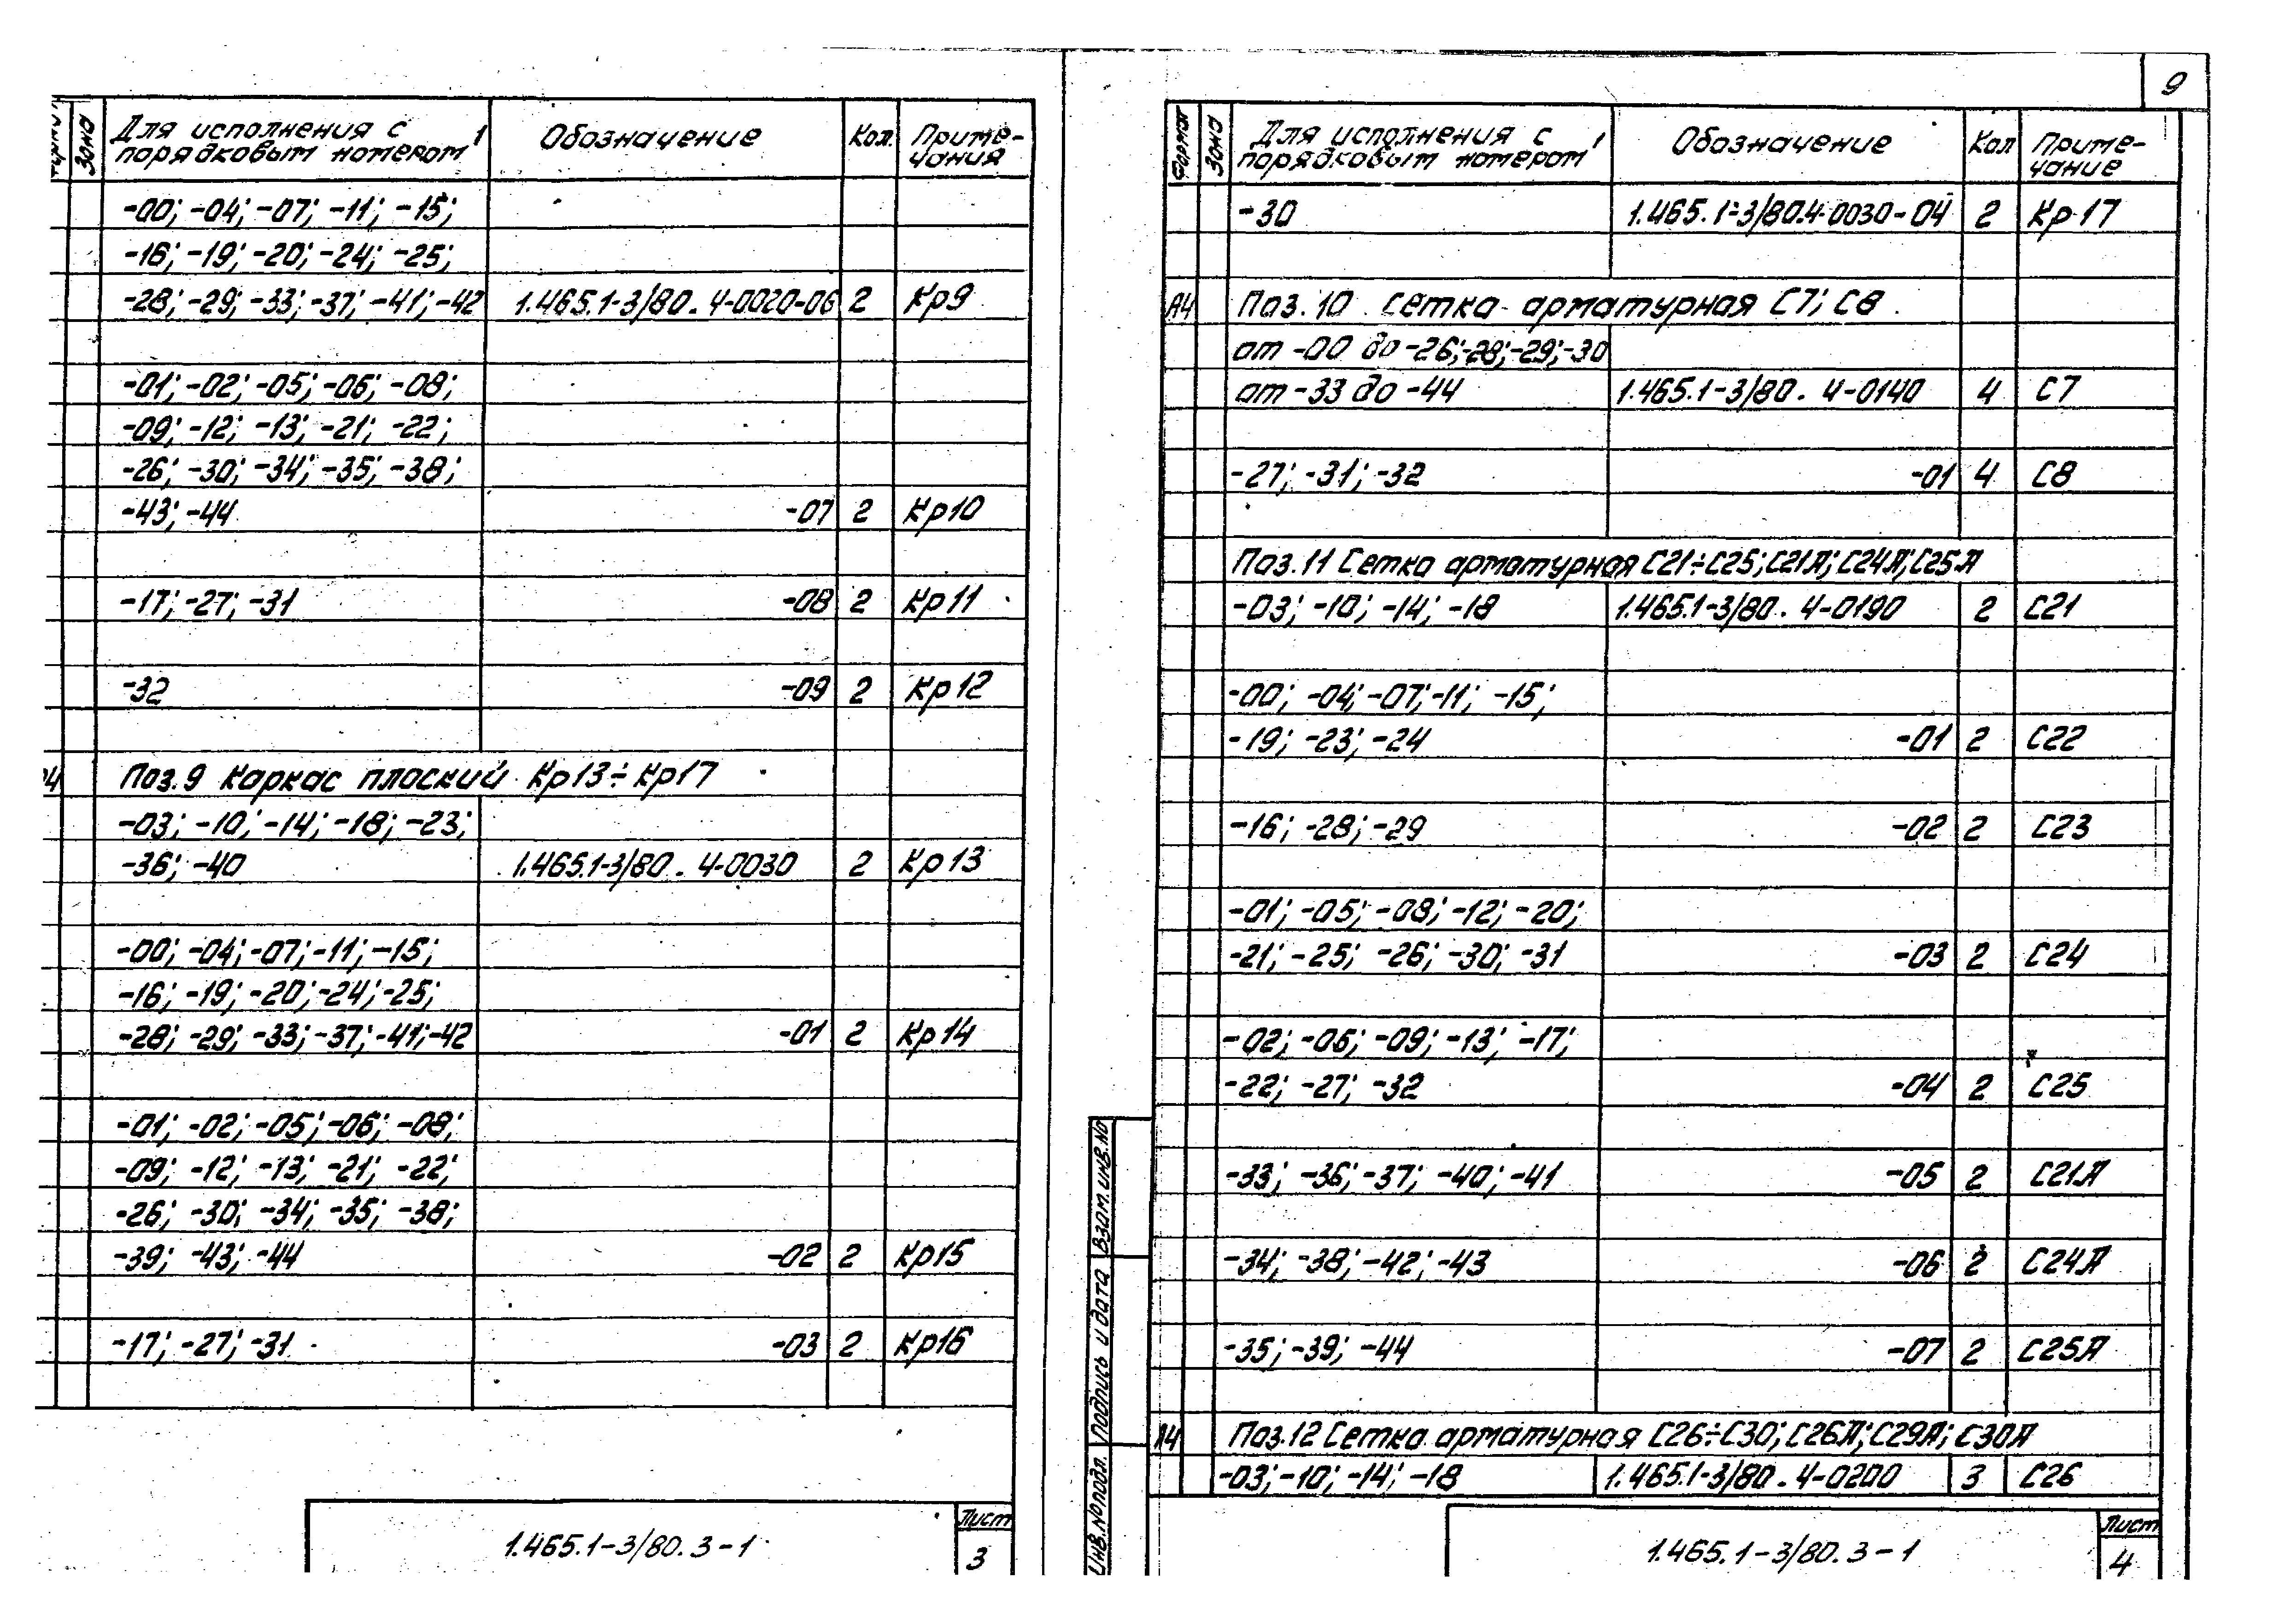 Зона Для исполнения с порядковым номером 1 Обозначение Кол. Приме-чания
-00; -04; -07; -11; -15;
-16; -19; -20; -24; -25;
-28; -29; -33; -37; -41; -42 1.465.1-3/80. 4-0020-06 2 Кр9
-01; -02; -05; -06; -08;
-09; -12; -13; -21; -22;
-26; -30; -34; -35; -38;
-43; -44 -07 2 Кр10
-17; -27; -31 -08 2 Кр11
-32 -09 2 Кр12
Поз.9 Каркас плоский Кр13÷Кр17
-03; -10; -14; -18; -23;
-36; -40 1.465.1-3/80. 4-0030 2 Кр13
-00; -04; -07; -11; -15;
-16; -19; -20; -24; -25;
-28; -29; -33; -37; -41; -42 -01 2 Кр14
-01; -02; -05; -06; -08;
-09; -12; -13; -21; -22;
-26; -30; -34; -35; -38;
-39; -43; -44 -02 2 Кр15
-17; -27; -31 -03 2 Кр16
1.465.1-3/80. 3-1
Лист
3
9
Формат Зона Для исполнения с порядковым номером 1 Обозначение Кол Приме-чание
-30 1.465.1-3/80.4-0030-04 2 Кр17
А4 Поз.10 Сетка арматурная С7; С8
от -00 до -26; -28; -29; -30
от -33 до -44 1.465.1-3/80. 4-0140 4 С7
-27; -31; -32 -01 4 С8
Поз.11 Сетка арматурная С21÷С25; С21Л; С24Л; С25Л
-03; -10; -14; -18 1.465.1-3/80. 4-0190 2 С21
-00; -04; -07; -11; -15;
-19; -23; -24 -01 2 С22
-16; -28; -29 -02 2 С23
-01; -05; -08; -12; -20;
-21; -25; -26; -30; -31 -03 2 С24
-02; -06; -09; -13; -17;
-22; -27; -32 -04 2 С25
-33; -36; -37; -40; -41 -05 2 С21Л
-34; -38; -42; -43 -06 2 С24Л
-35; -39; -44 -07 2 С25Л
А4 Поз.12 Сетка арматурная С26÷С30; С26Л; С29Л; С30Л
-03; -10; -14; -18 1.465.1-3/80. 4-0200 3 С26
Инв.№подл. Подпись и дата Взам.инв.№
1.465.1-3/80. 3-1
Лист
4